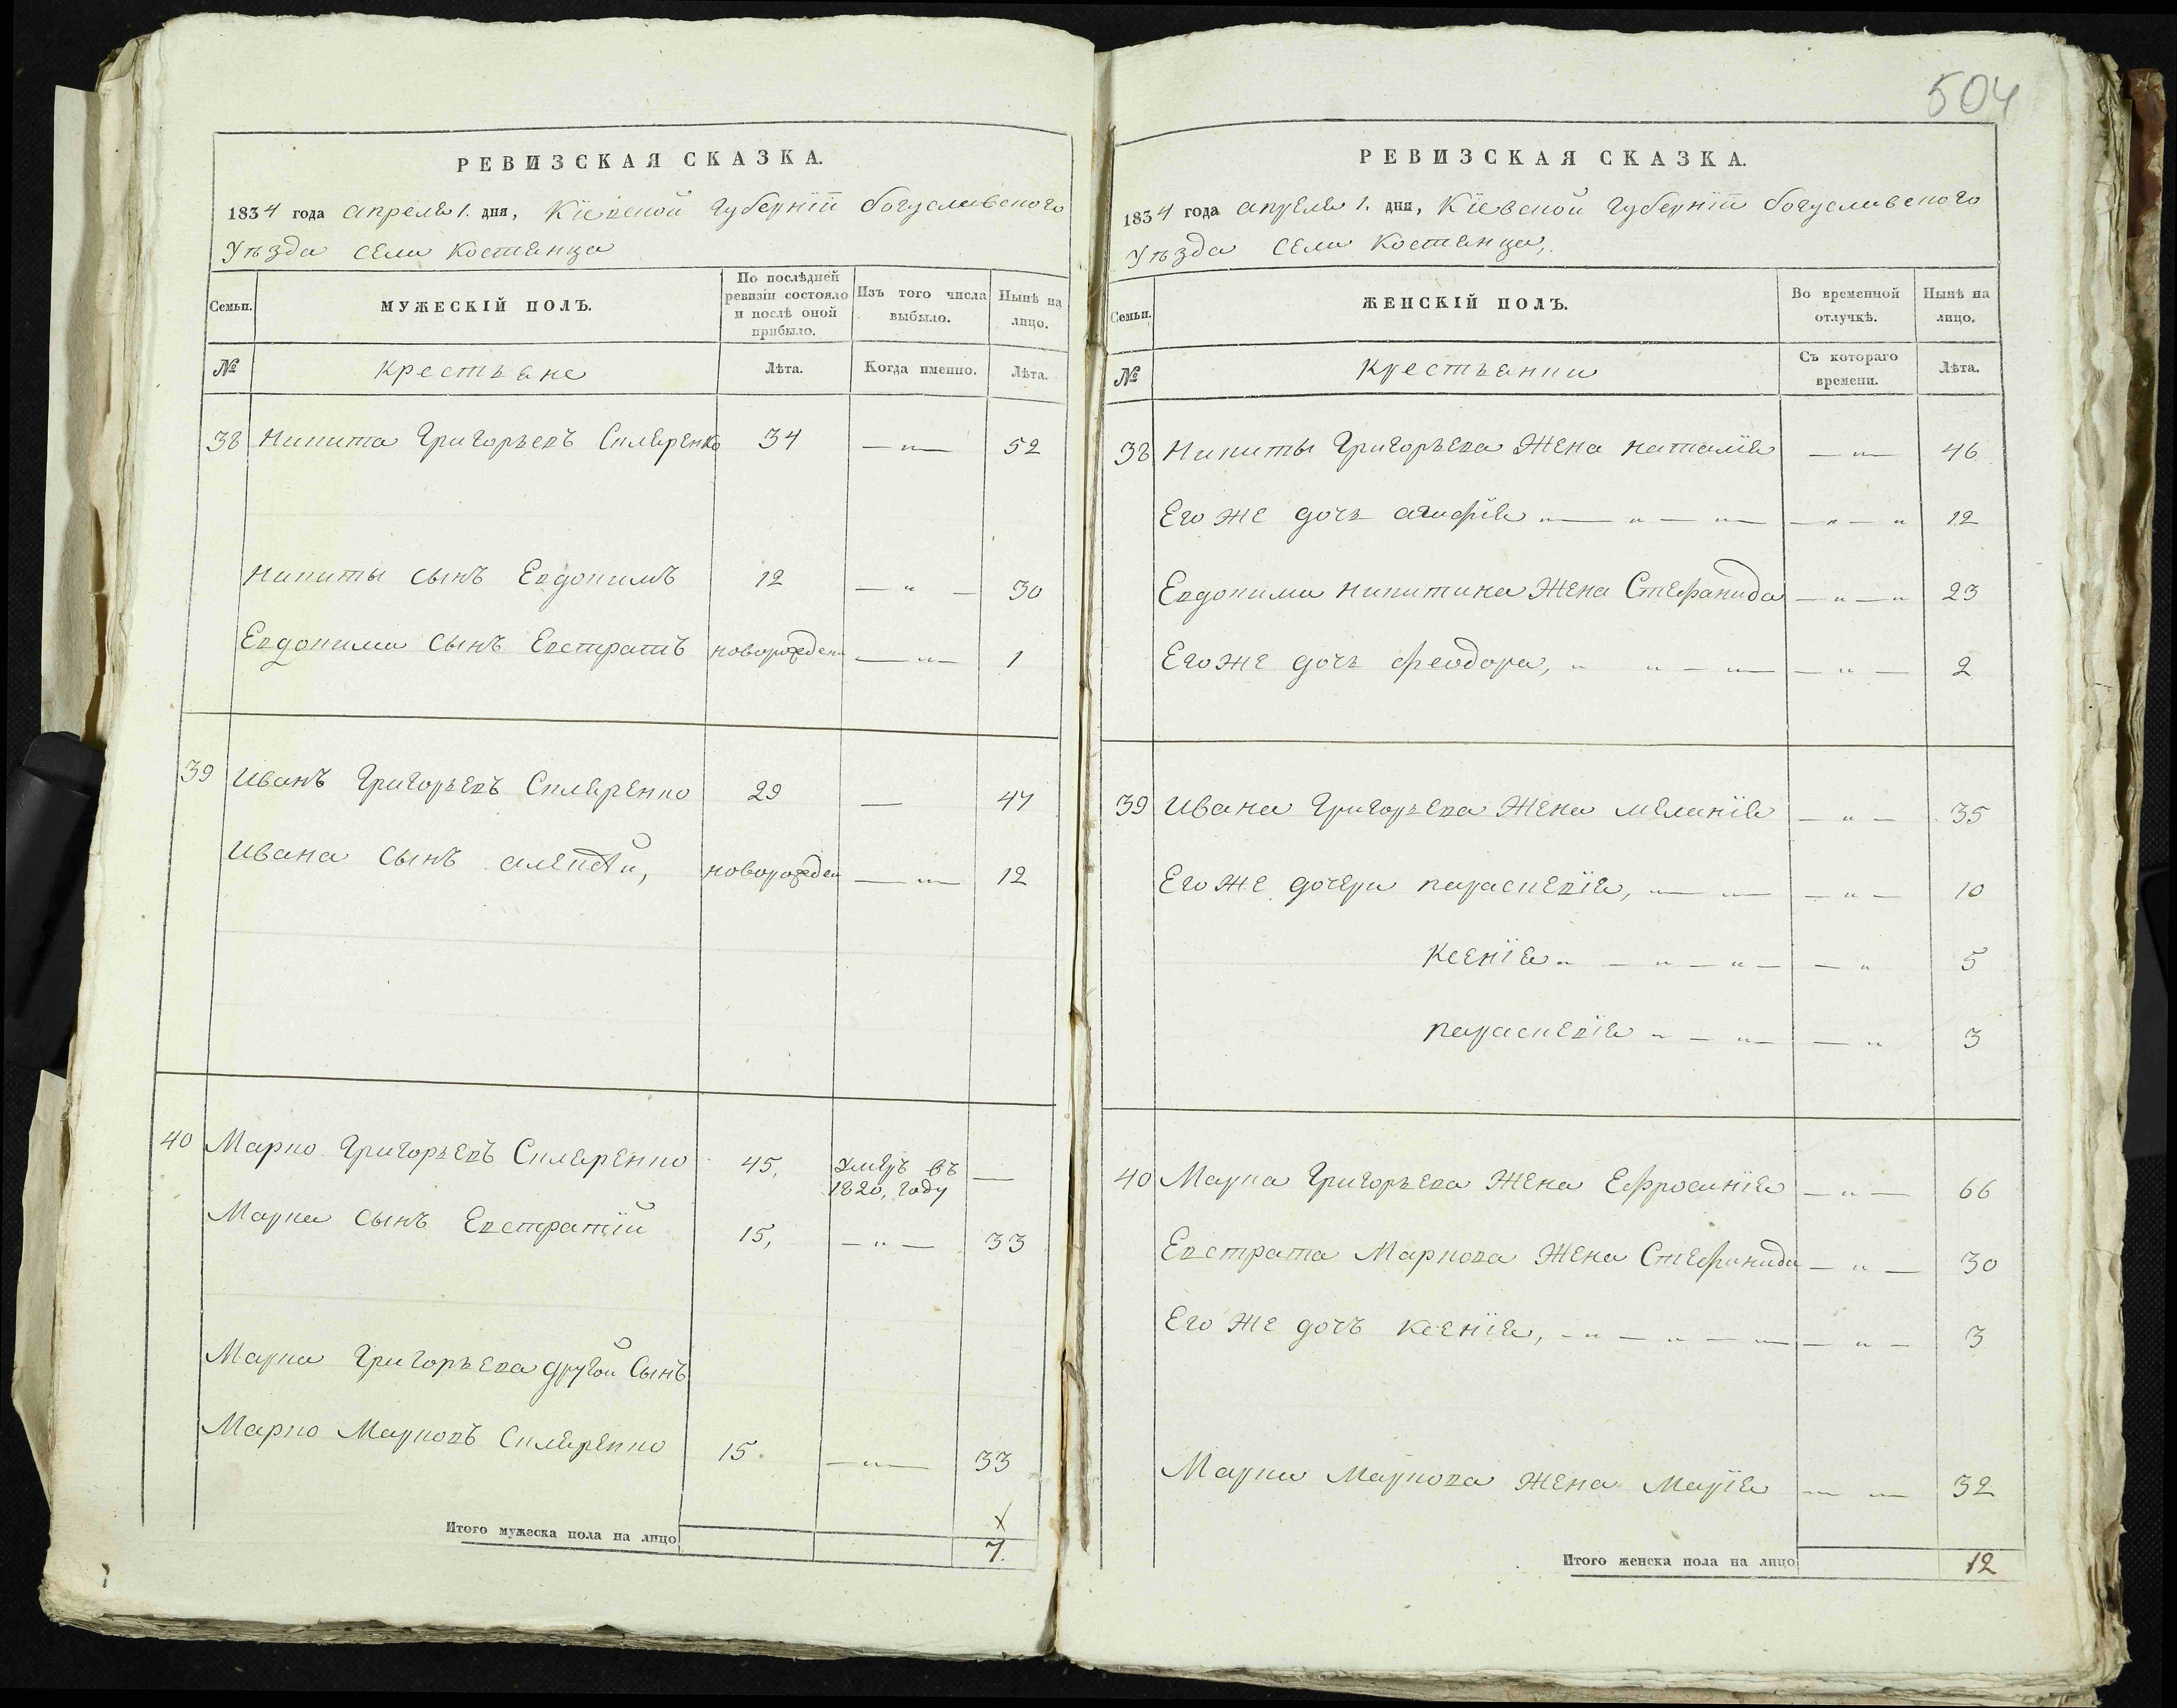 РЕВИЗСКАЯ СКАЗКА.
1834 года апреля 1. дня, Кіевской губерніи богуславского
Уѣзда села Костянца
Семьи.
МУЖЕСКІЙ ПОЛЪ.
По послѣдней ревизіи состояло и послѣ оной прибыло.
Изъ того числа выбыло.
Нынѣ на лицо.
№ крестьяне Лѣта. Когда именно. Лѣта.
38 Никита Григорьевъ Скляренко 34 — „ — 52
Никиты сынъ Евдокимъ 12 — „ — 30
Евдокима сынъ Евстратъ новорожден — „ — 1
39 Иванъ Григорьевъ Скляренко 29 — 47
Ивана сынъ алексѣй, новорожден — „ — 12
40 Марко Григорьевъ Скляренко 45, умеръ въ —
1820, году
Марка сынъ Евстратій 15, — „ — 33
Марка Григорьева другой Сынъ
Марко Марковъ Скляренко 15. — „ — 33
х
Итого мужеска пола на лицо 7.
504
РЕВИЗСКАЯ СКАЗКА.
1834 года апреля 1. дня, Кіевской губерніи богуславского
Уѣзда села Костянца,
Семьи.
ЖЕНСКІЙ ПОЛЪ.
Во временной отлучкѣ.
Нынѣ на лицо.
№ Крестьянки Съ котораго времени. Лѣта.
38 Никиты Григорьева Жена наталія — „ — 46
Его же дочь агафія „ — „ — „ — — „ — „ 12
Евдокима никитина Жена Стефанида — „ — „ 23
Его же дочь феодора, „ „ — „ — — „ — 2
39 Ивана Григорьева Жена меланія — „ — 35
Его же дочери параскевія, — „ — „ — — „ — 10
ксенія „ — „ — „ — — „ 5
параскевія „ — „ — — „ 3
40 Марка Григорьева Жена Ефросинія — „ — 66
Евстрата Маркова Жена Стефанида — „ — 30
Его же дочъ ксенія, — „ — „ — „ — — „ — 3
Марка Маркова Жена Марія — „ — 32
Итого женска пола на лицо 12